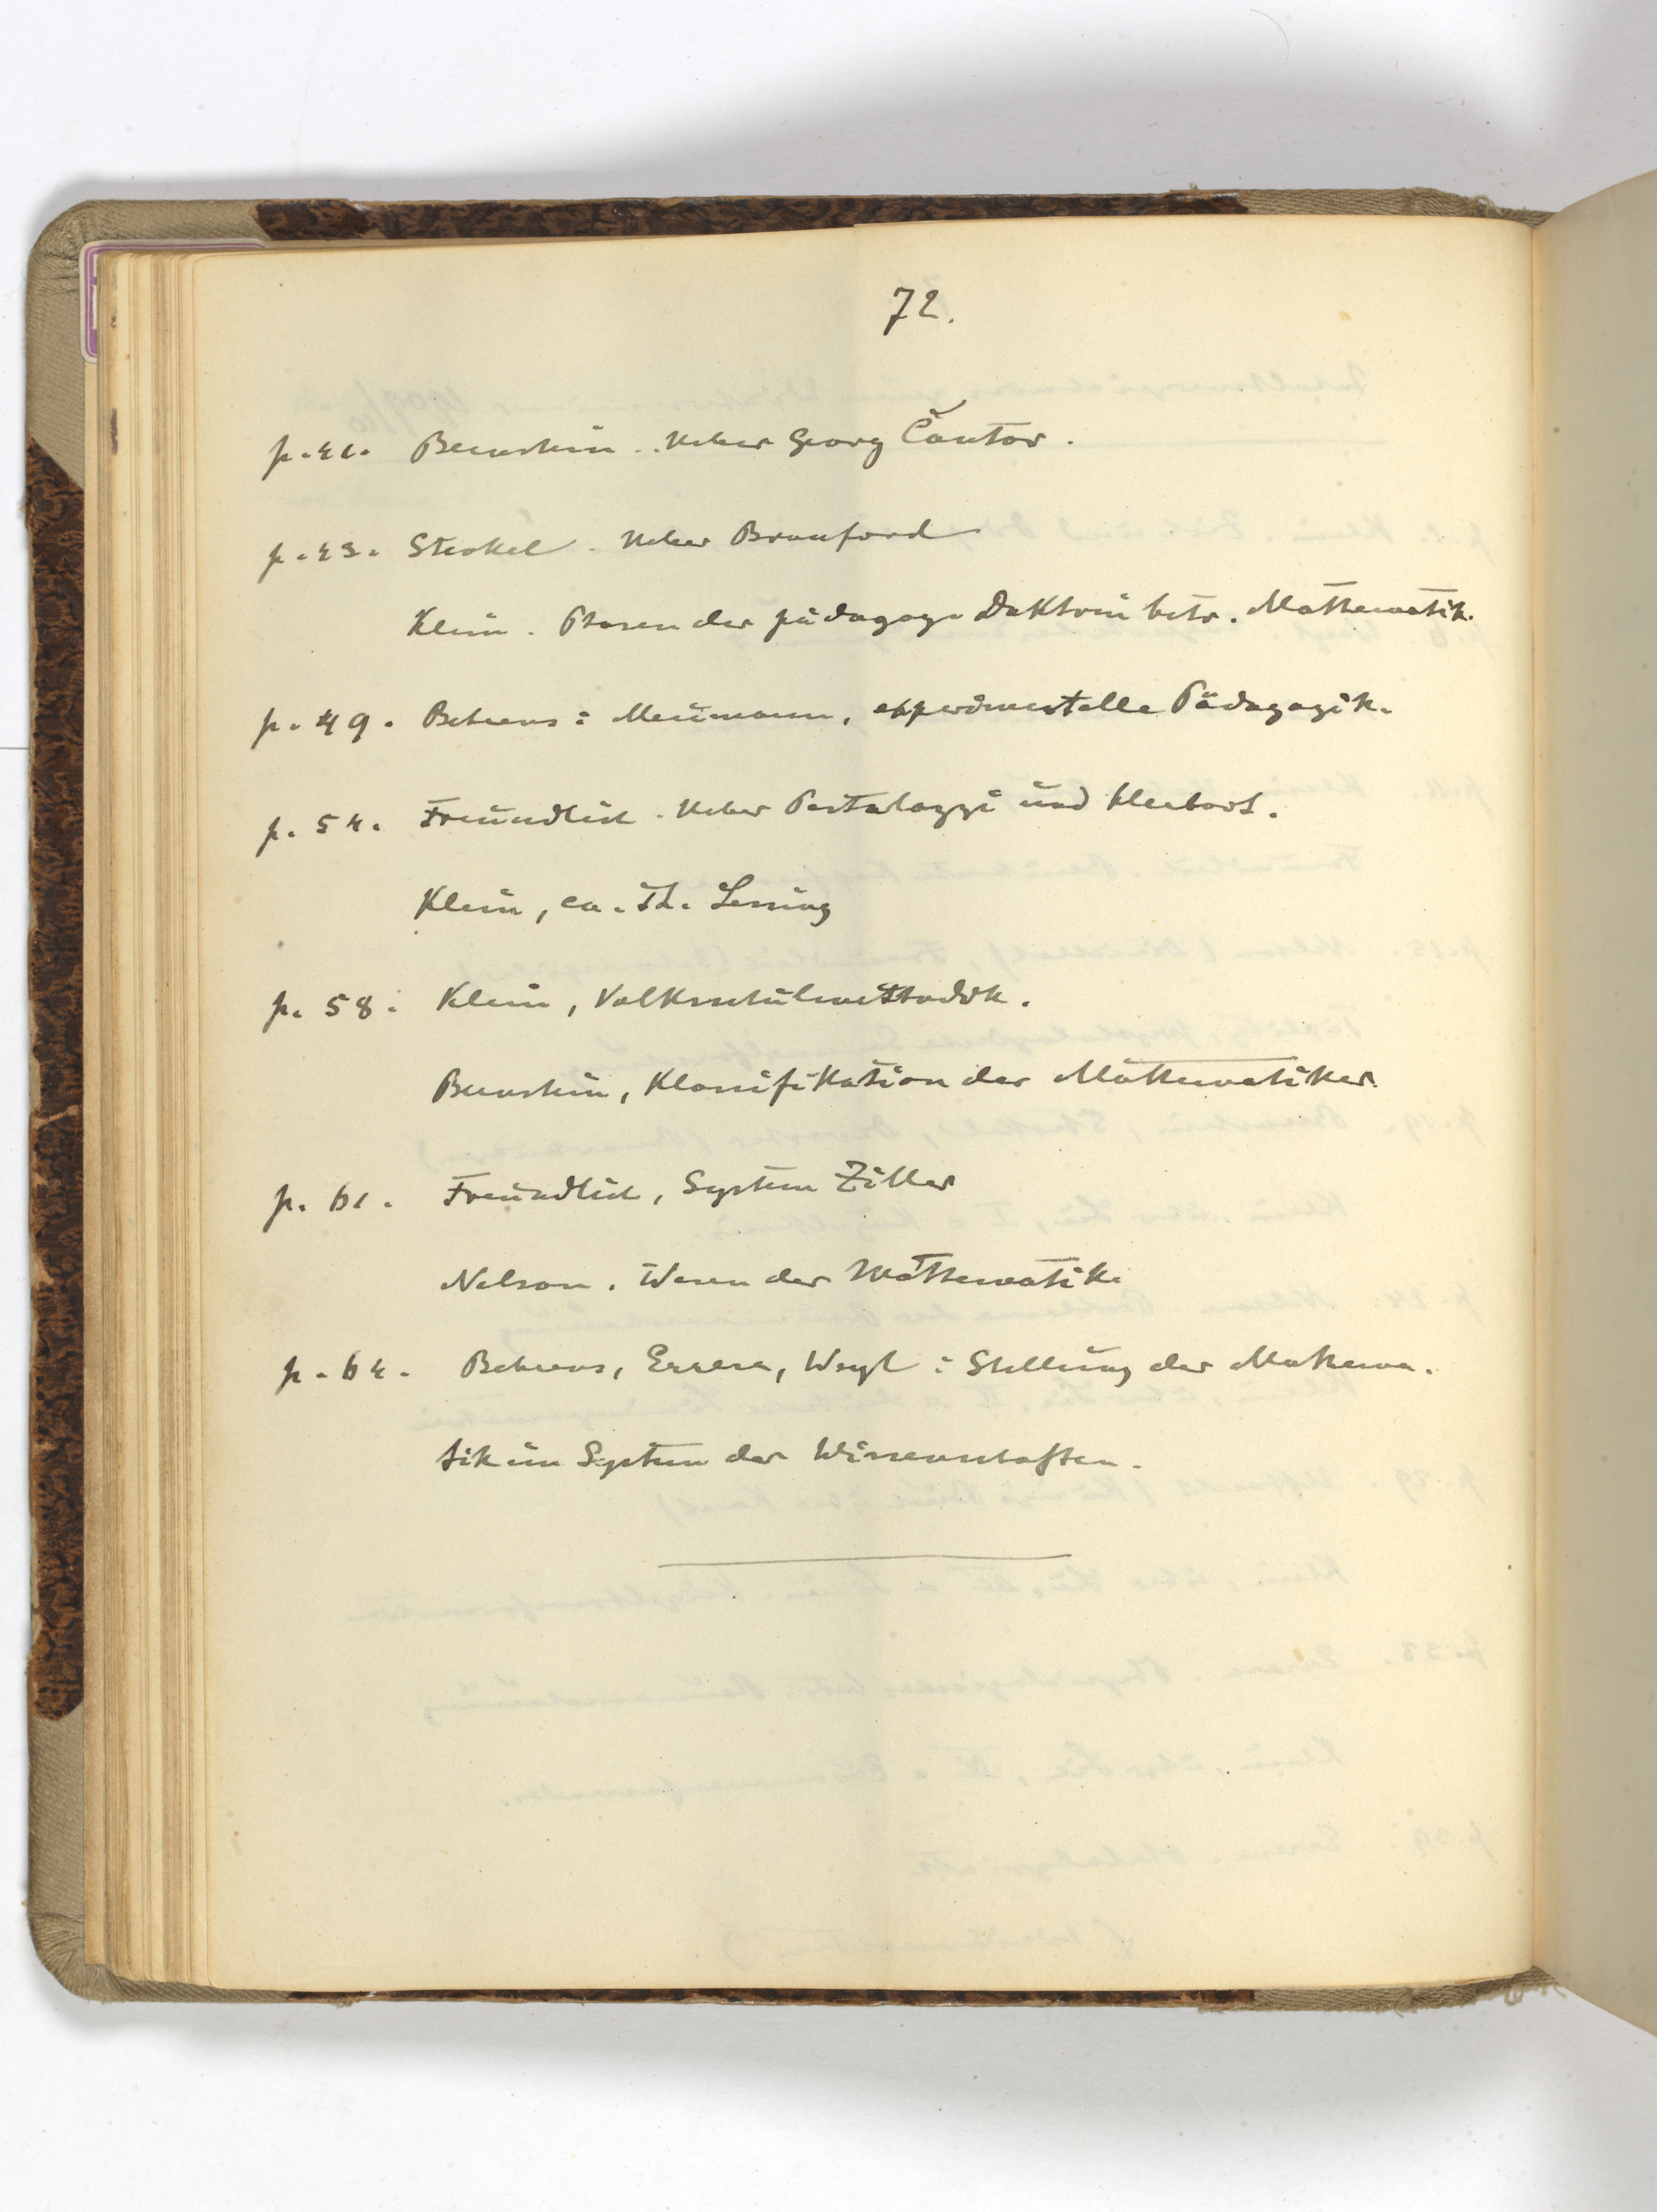 72.
p. 41. Bernstein. Ueber Georg Cantor.
p. 43. Steckel. Ueber Branford
Klein. Phasen der pädagog. Doktrin betr. Mathematik.
p. 49. Behrens: Meumann, experimentelle Pädagogik.
p. 54. Freundlich. Ueber Pestalozzi und Herbart.
Klein, ca. Th. Lessing
p. 58. Klein, Volksschulmethodik.
Bernstein, Klassifikation der Mathematiker.
p. 61. Freundlich, System Ziller
Nelson. Wesen der Mathematik.
p. 64. Behrens, Errera, Weyl: Stellung der Mathema-
tik im System der Wissenschaften.